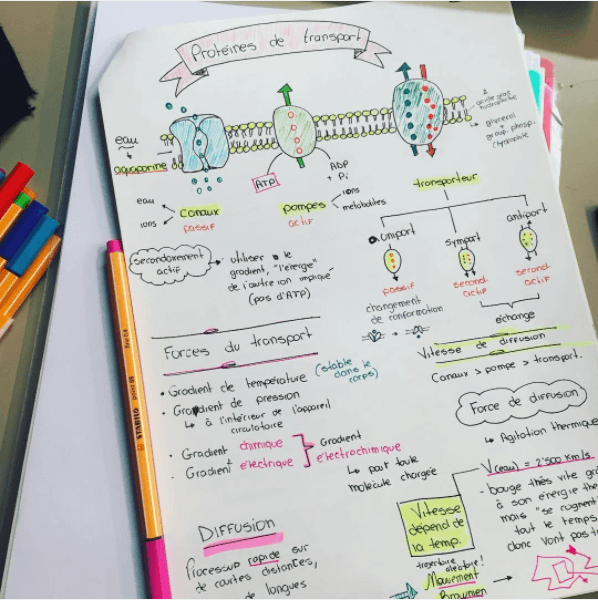 Protéines de transport
eau
aquaporine
ATP
ADP
+ Pi
2
acide gras
hydrophobe
glycérol
+
group. phosp.
hydrophile
eau
ions
canaux
passif
pompes
actif
ions
métabolites
transporteur
uniport
symport
antiport
passif
second.
actif
second.
actif
changement
de conformation
échange
secondairement
actif
utiliser le
gradient, "l'énergie"
de l'autre ion impliqué
(pas d'ATP)
Forces du transport
• Gradient de température (stable
dans le
corps)
• Gradient de pression
↳ à l'intérieur de l'appareil
circulatoire
• Gradient chimique
• Gradient électrique
Gradient
électrochimique
↳ pour toute
molécule chargée
Vitesse de diffusion
Canaux > pompe > transport.
Force de diffusion
↳ Agitation thermique
V(eau) = 2'500 km/s
- bouge très vite
à son énergie
mais "se cognent"
tout le temps
donc vont pas
Vitesse
dépend de
la temp.
trajectoire
aléatoire!
Mouvement
Brownien
DIFFUSION
Processus rapide sur
de courtes distances,
de longues
STABILO
point 88
fine 0.4